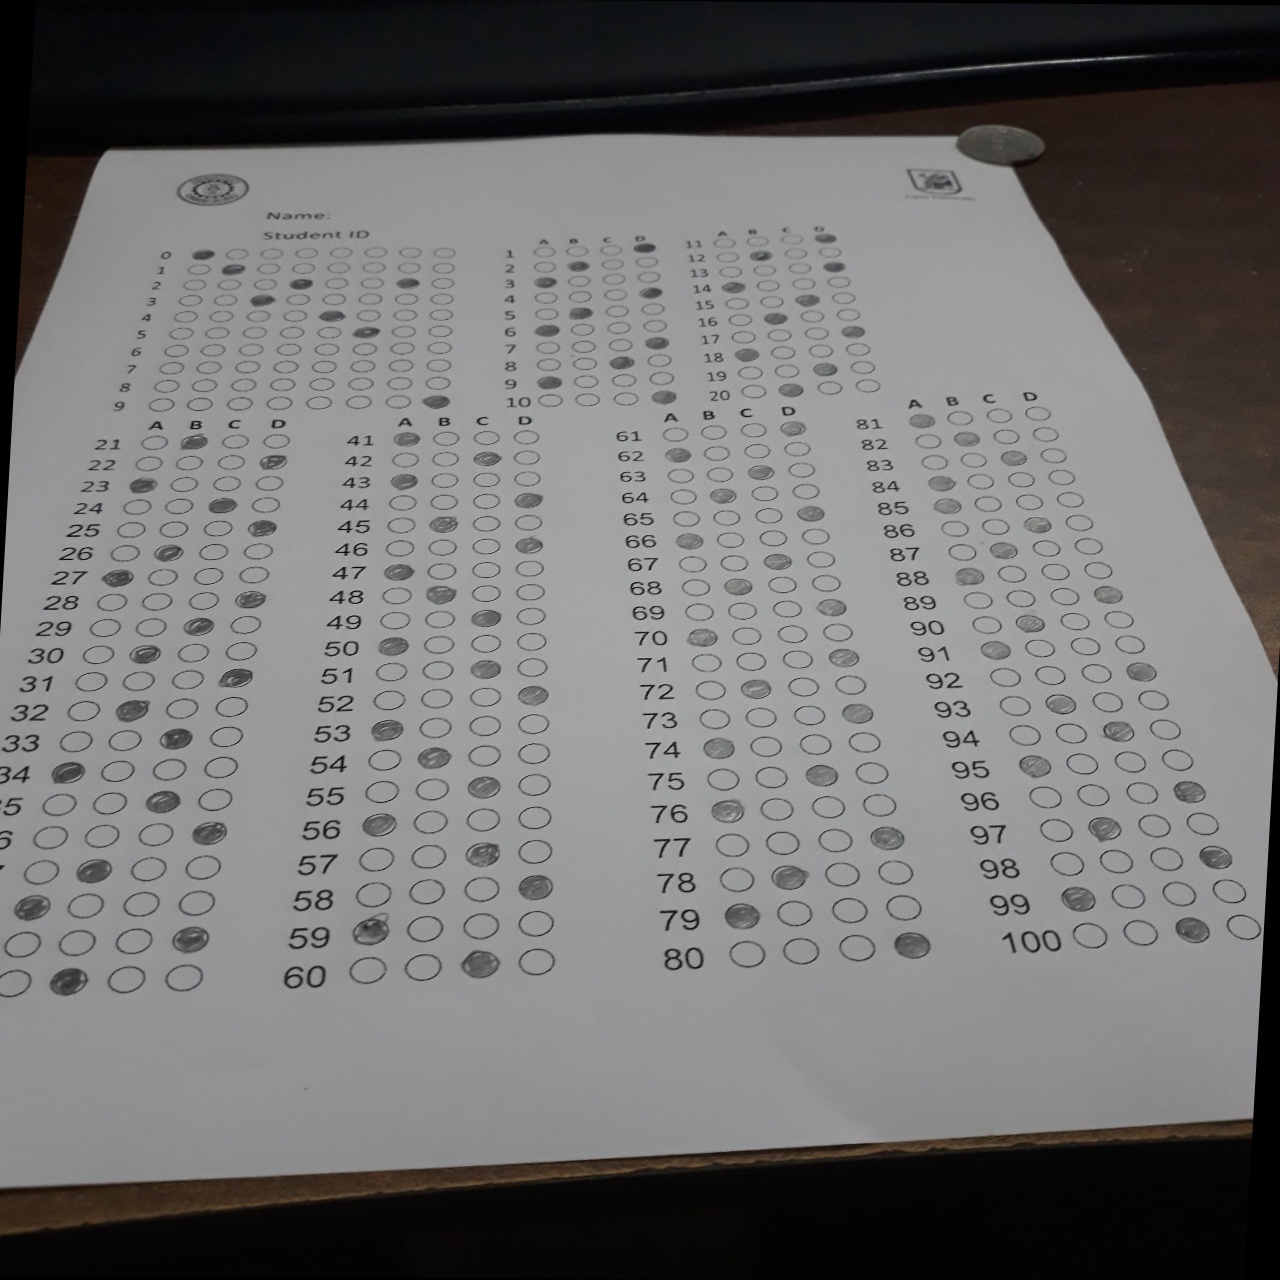 Name:
Student ID
0
1
2
3
4
5
6
7
8
9
A B C D
1
2
3
4
5
6
7
8
9
10
A B C D
11
12
13
14
15
16
17
18
19
20
A B C D
21
22
23
24
25
26
27
28
29
30
31
32
33
34
A B C D
41
42
43
44
45
46
47
48
49
50
51
52
53
54
55
56
57
58
59
60
A B C D
61
62
63
64
65
66
67
68
69
70
71
72
73
74
75
76
77
78
79
80
A B C D
81
82
83
84
85
86
87
88
89
90
91
92
93
94
95
96
97
98
99
100